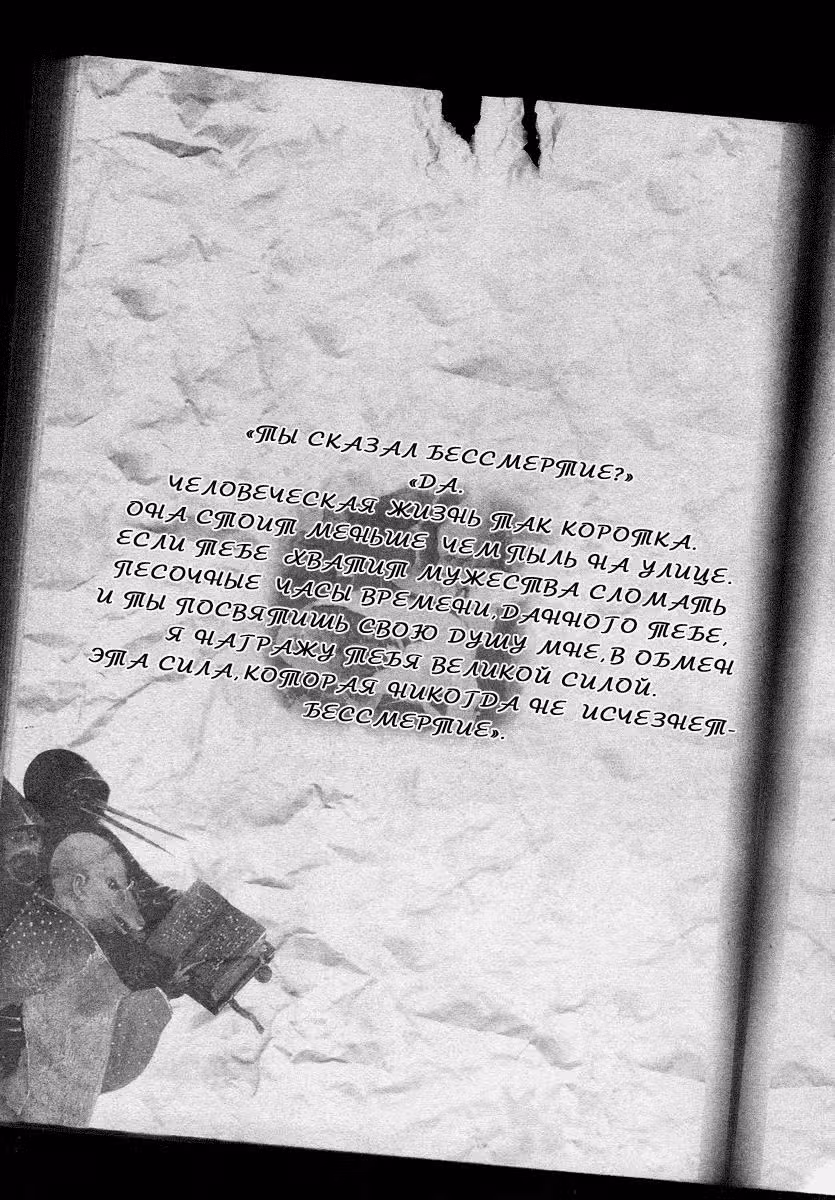 «ТЫ СКАЗАЛ БЕССМЕРТИЕ?»
«ДА.
ЧЕЛОВЕЧЕСКАЯ ЖИЗНЬ ТАК КОРОТКА.
ОНА СТОИТ МЕНЬШЕ ЧЕМ ПЫЛЬ НА УЛИЦЕ.
ЕСЛИ ТЕБЕ ХВАТИТ МУЖЕСТВА СЛОМАТЬ
ПЕСОЧНЫЕ ЧАСЫ ВРЕМЕНИ,ДАННОГО ТЕБЕ,
И ТЫ ПОСВЯТИШЬ СВОЮ ДУШУ МНЕ,В ОБМЕН
Я НАГРАЖУ ТЕБЯ ВЕЛИКОЙ СИЛОЙ.
ЭТА СИЛА,КОТОРАЯ НИКОГДА НЕ ИСЧЕЗНЕТ-
БЕССМЕРТИЕ».